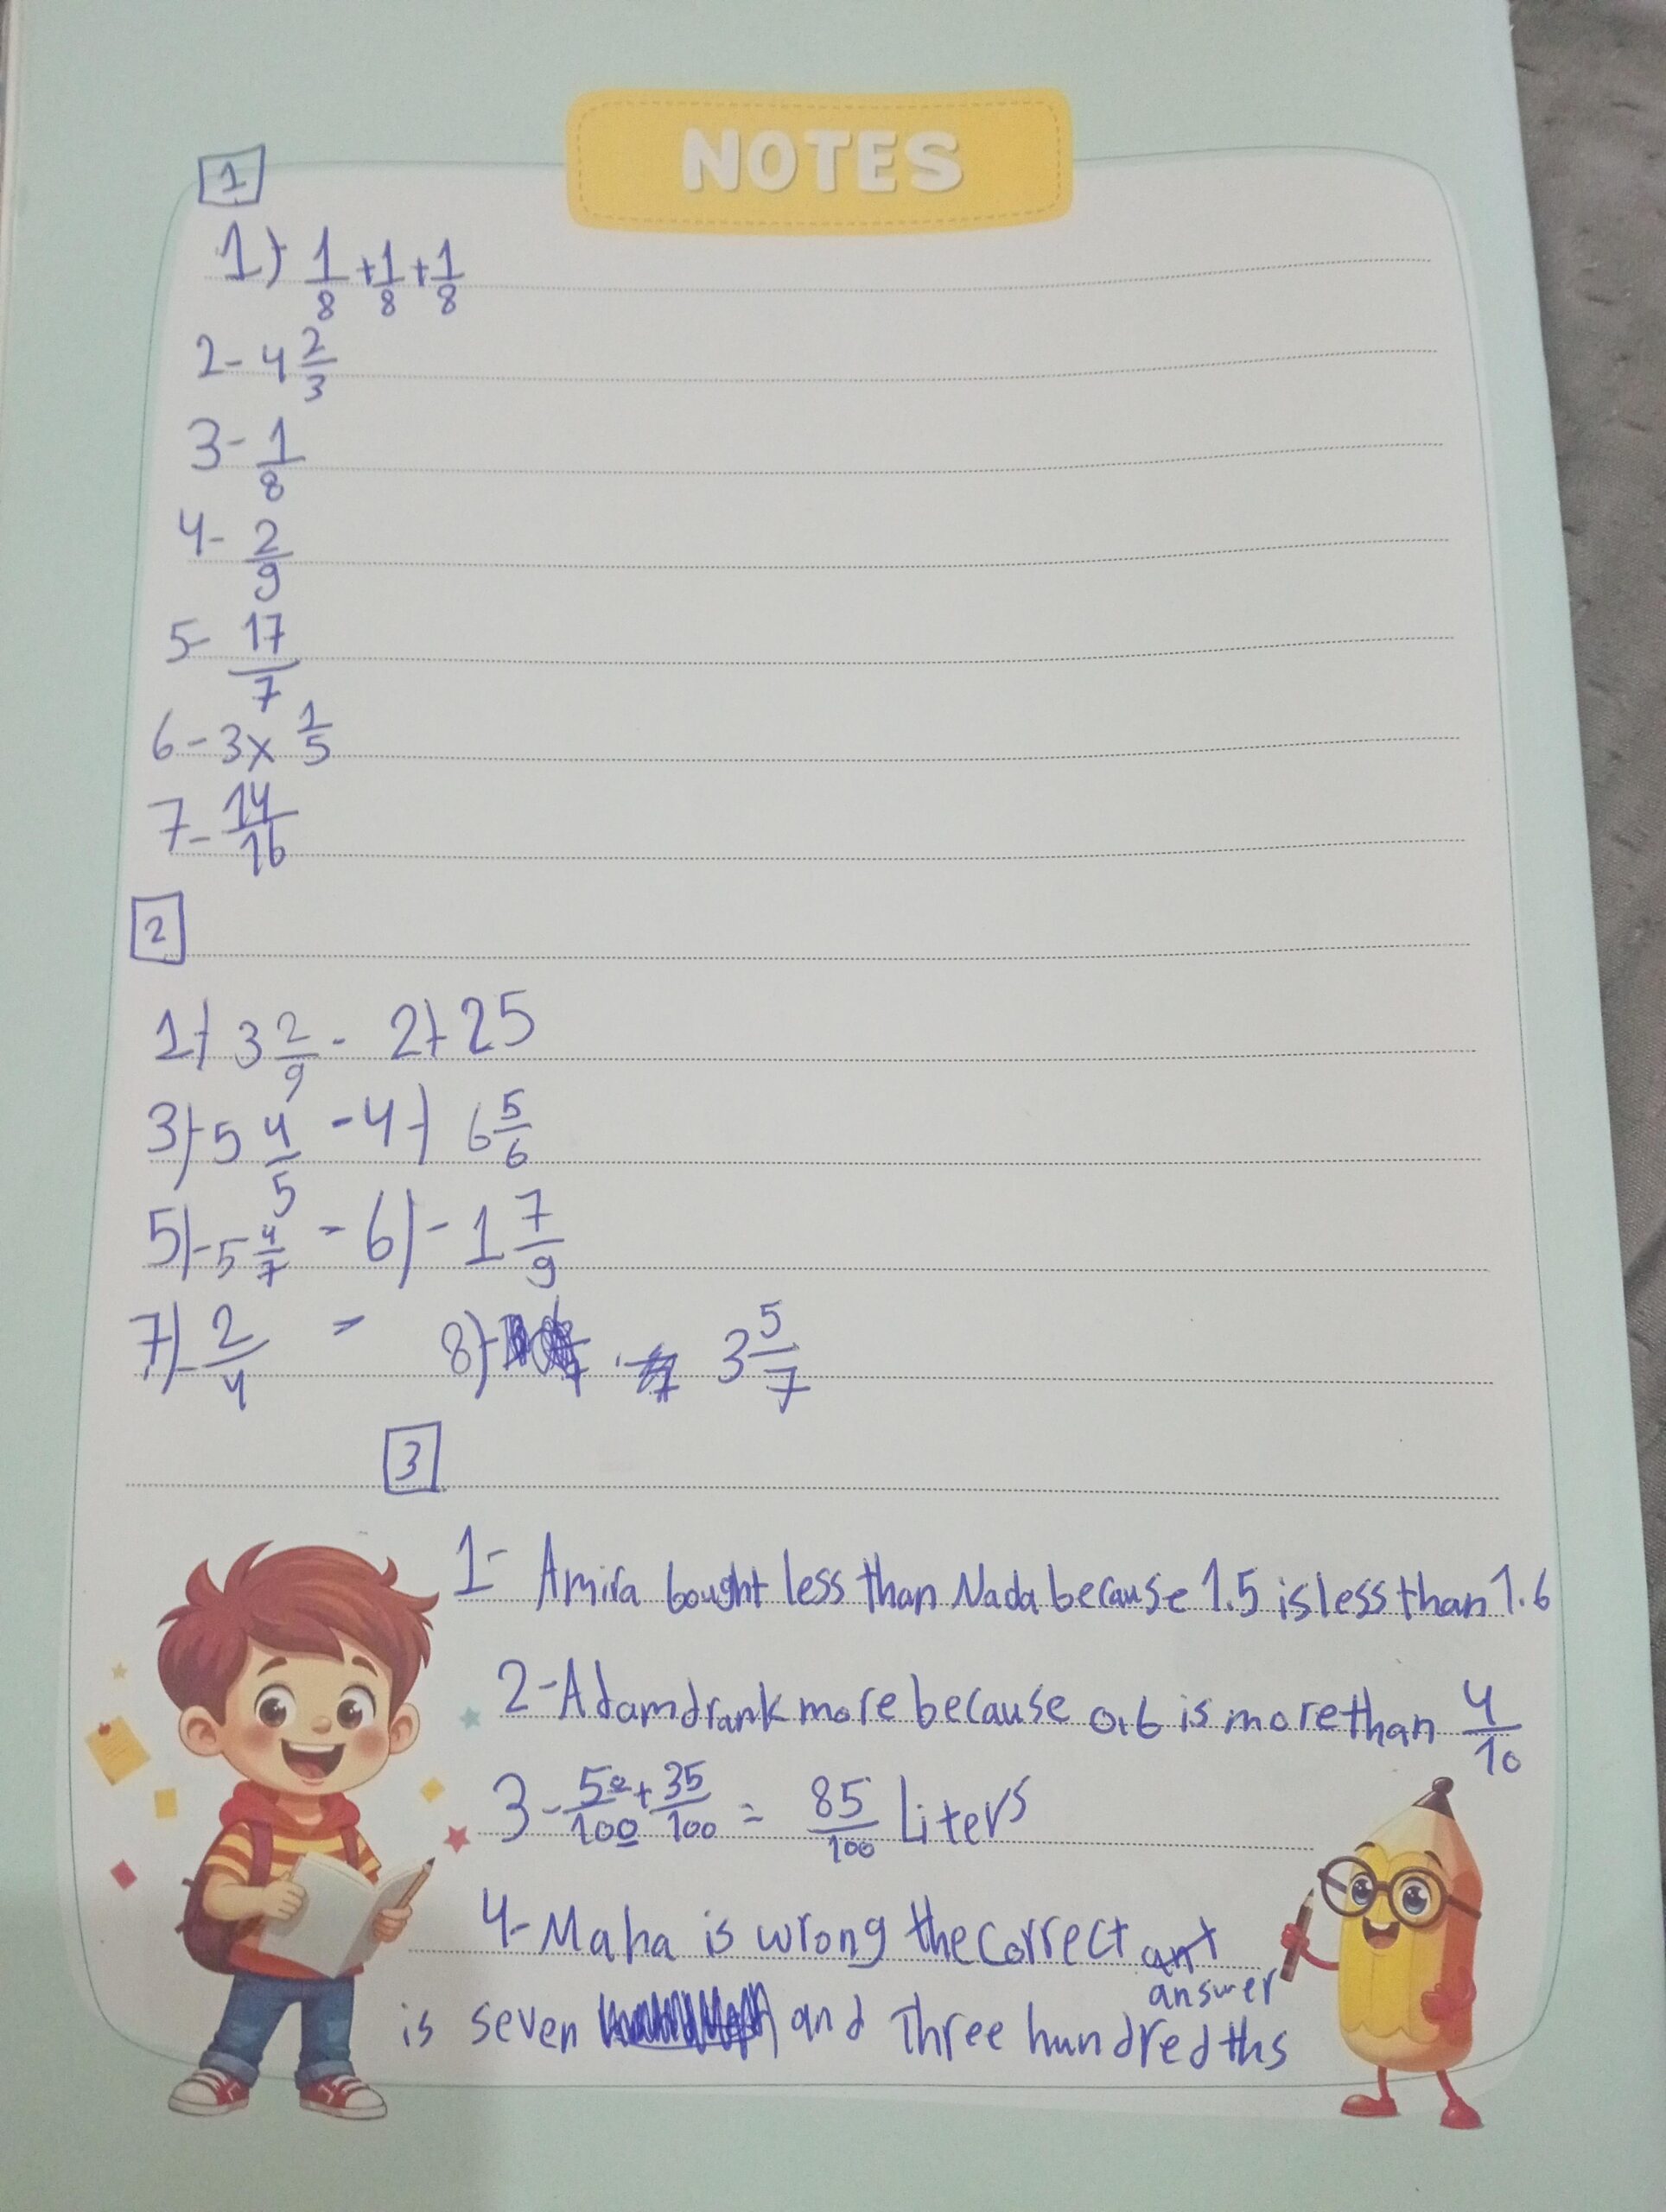 NOTES
1
1) 1/8 + 1/8 + 1/8
2- 4 2/3
3- 1/8
4- 2/9
5- 17/7
6- 3 x 1/5
7- 14/16
2
1)- 3 2/9 - 2)- 25
3)- 5 4/5 - 4)- 6 5/6
5)- 5 4/7 - 6)- 1 7/9
7)- 2/4 - 8)- 3 5/7
3
1- Amira bought less than Nada because 1.5 is less than 1.6
2- Adam drank more because 0,6 is more than 4/10
3- 50/100 + 35/100 = 85/100 Liters
4- Maha is wrong the correct
answer
is seven and three hundredths